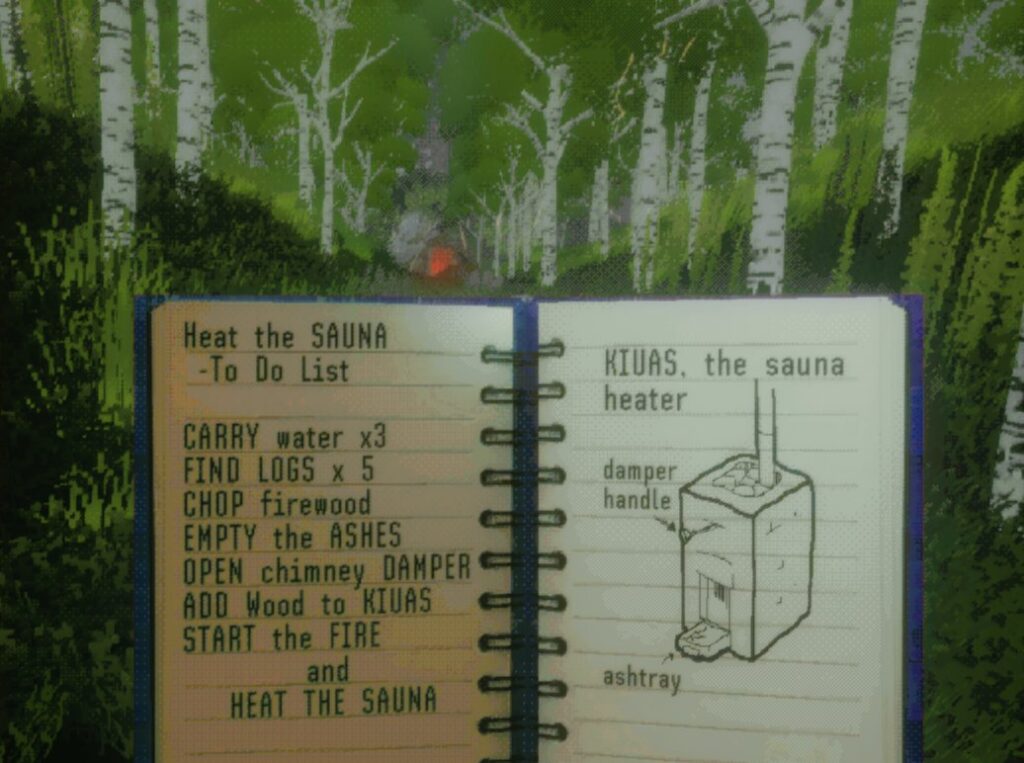 Heat the SAUNA
-To Do List
CARRY water x3
FIND LOGS x 5
CHOP firewood
EMPTY the ASHES
OPEN chimney DAMPER
ADD Wood to KIUAS
START the FIRE
and
HEAT THE SAUNA
KIUAS, the sauna
heater
damper
handle
ashtray